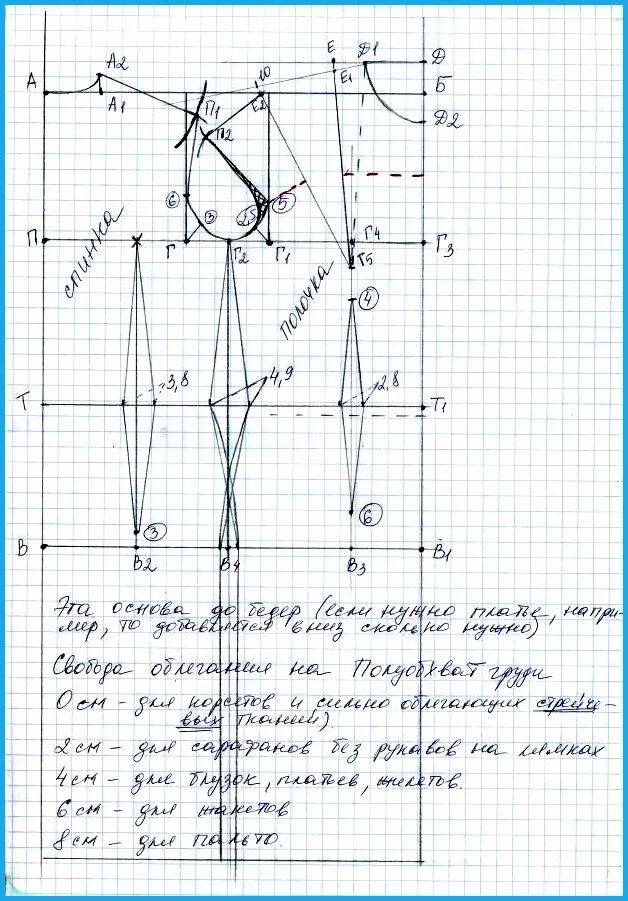 А2
Е
Д1
Д
А
А1
10
Е1
Б
П1
Е2
П2
Д2
6
3
2,5
5
П
Г
Г2
Г1
Г4
Г3
Г5
спинка
полочка
4
3,8
4,9
2,8
Т
Т1
3
6
В
В2
В4
В3
В1
Эта основа до бедер (если нужно платье, напри-
мер, то добавляется вниз сколько нужно)
Свобода облегания на Полуобхват груди
0 см - для корсетов и сильно облегающих стрейче-
вых тканей).
2 см - для сарафанов без рукавов на лямках
4 см - для блузок, платьев, жилетов.
6 см - для жакетов
8 см - для пальто.